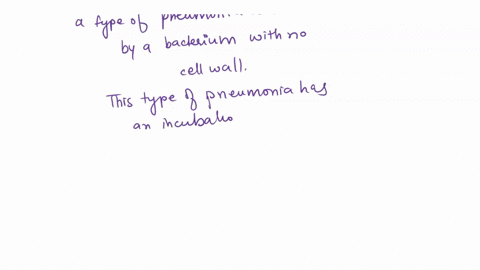 a type of pneumonia
by a bacterium with no
cell wall.
This type of pneumonia has
an incubatio